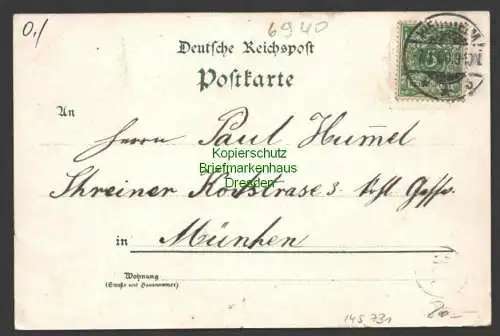 0,1
6940
Deutsche Reichspost
Postkarte
An
Herrn Paul Hummel
Kopierschutz
Briefmarkenhaus
Dresden
Shreiner 3.
in München
Wohnung
(Straße und Hausnummer)
145 731
80.-